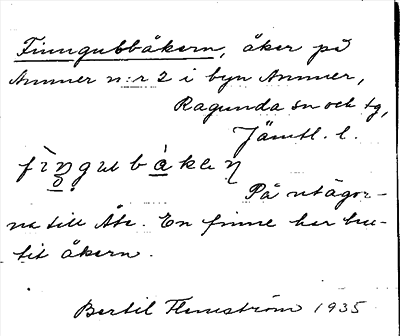 Finngubbåkern, åker på
Ammer n:r 2 i byn Ammer,
Ragunda sn och tg,
Jämtl. l.
fìŋgubàkeṇ
På utägor-
na till Åke. En finne har bru-
tit åkern.
Bertil Flemström 1935